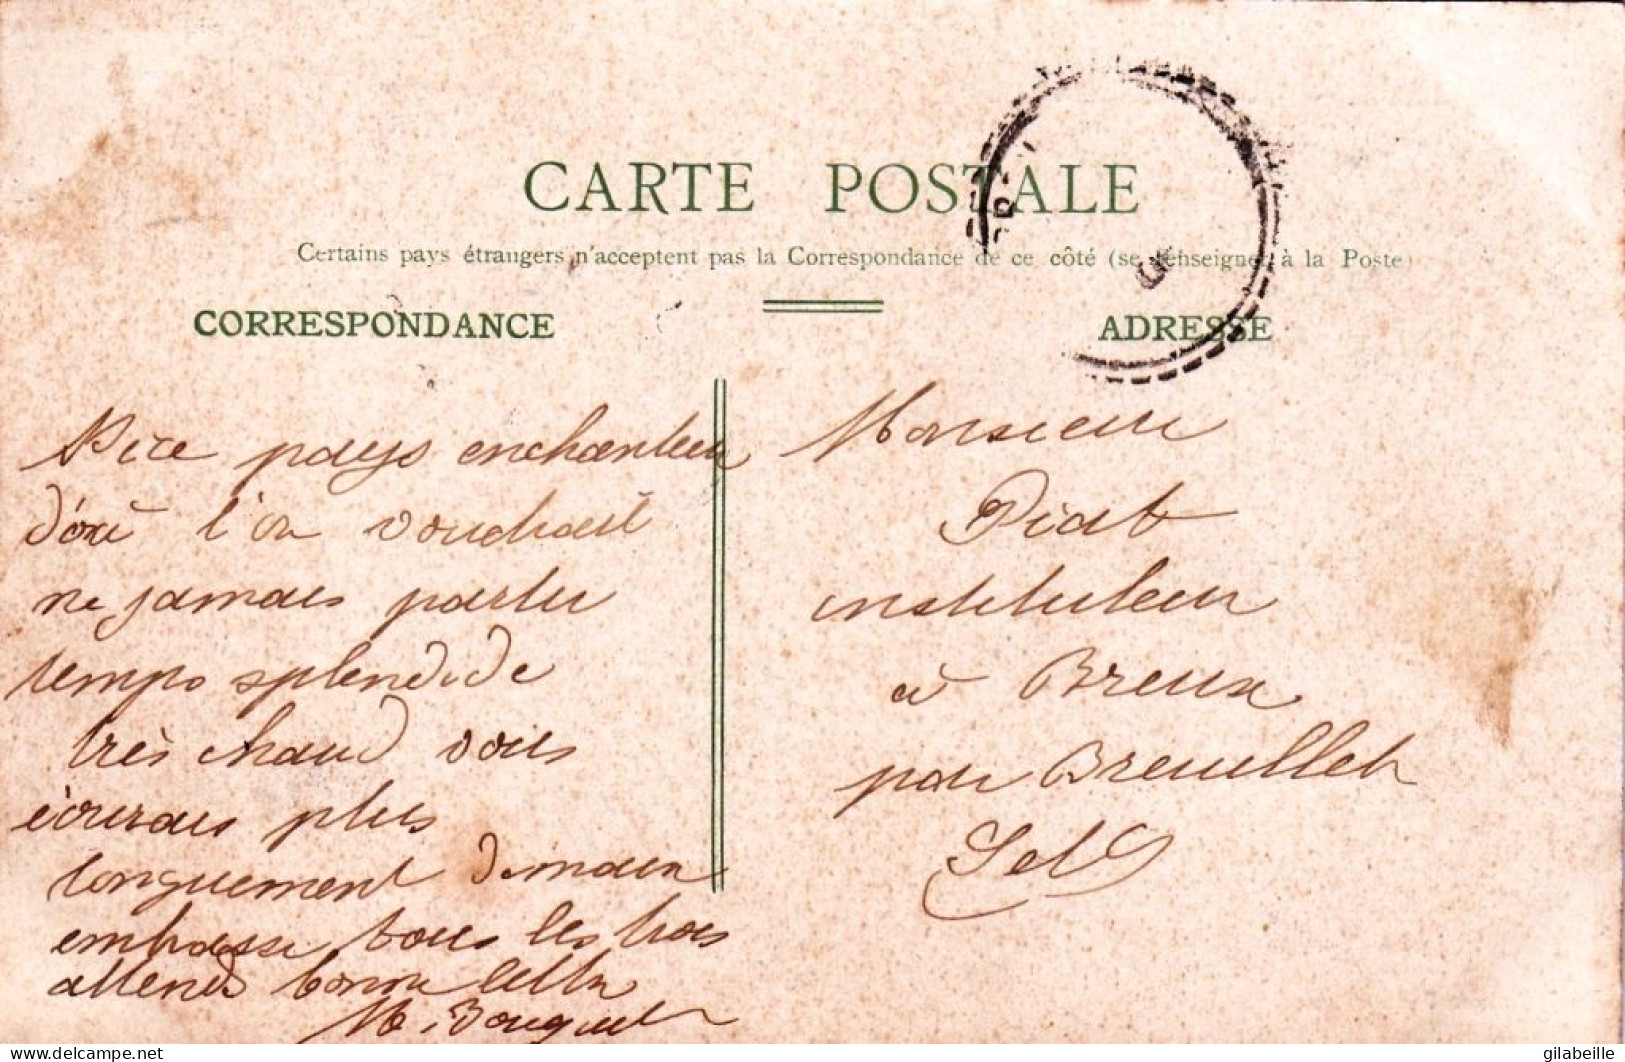 CARTE POSTALE
Certains pays étrangers n'acceptent pas la Correspondance de ce côté (se renseigner à la Poste)
CORRESPONDANCE
ADRESSE
Nice pays enchanteur
d'où l'on voudrait
ne jamais partir
temps splendide
très chaud vous
écrirais plus
longuement demain
embrasse tous les trois
attends bonne lettre
M. Bouquet
Monsieur
Piat
instituteur
à Breux
par Breuillet
S et O
gilabeille